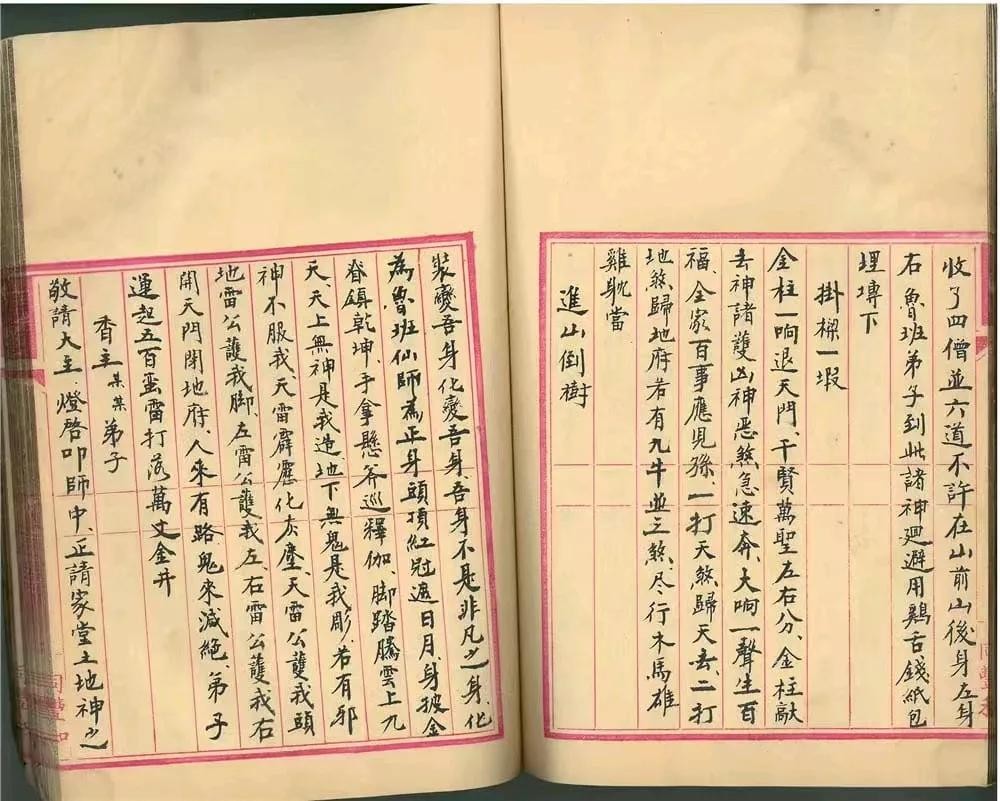 收了四僧並六道不許在山前山後身左身
右魯班弟子到此諸神廻避用鷄舌錢紙包
埋塼下
掛樑一嘏
金柱一响退天門千賢萬聖左右分、金柱敲
去神諸護凶神恶煞急速奔、大响一聲生百
福、全家百事應児孫、一打天煞歸天去、二打
地煞歸地府若有九牛並三煞、尽行木馬雄
雞躭當
進山倒樹
裝變吾身化變吾身、吾身不是非凡之身、化
為魯班仙師為正身頭頂紅冠遮日月、身披金
脊鎮乾坤、手拿懸斧巡釋伽、脚踏騰雲上九
天、天上無神是我造地下無鬼是我彫、若有邪
神不服我、天雷霹靂化灰塵、天雷公護我頭
地雷公護我脚、左雷公護我左、右雷公護我右
開天門閉地府、人来有路鬼来滅絶、弟子
運起五百蛮雷打落萬丈金井
香主某某弟子
敬請大主、燈啓叩師中、正請家堂土地神之